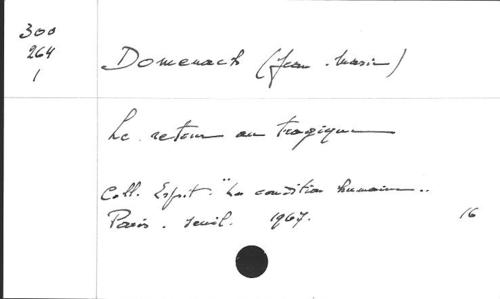 300
264
1
Domenach (Jean-Marie)
Le retour au tragique
Coll. Esprit. "La condition humaine"
Paris. Seuil. 1967. 16